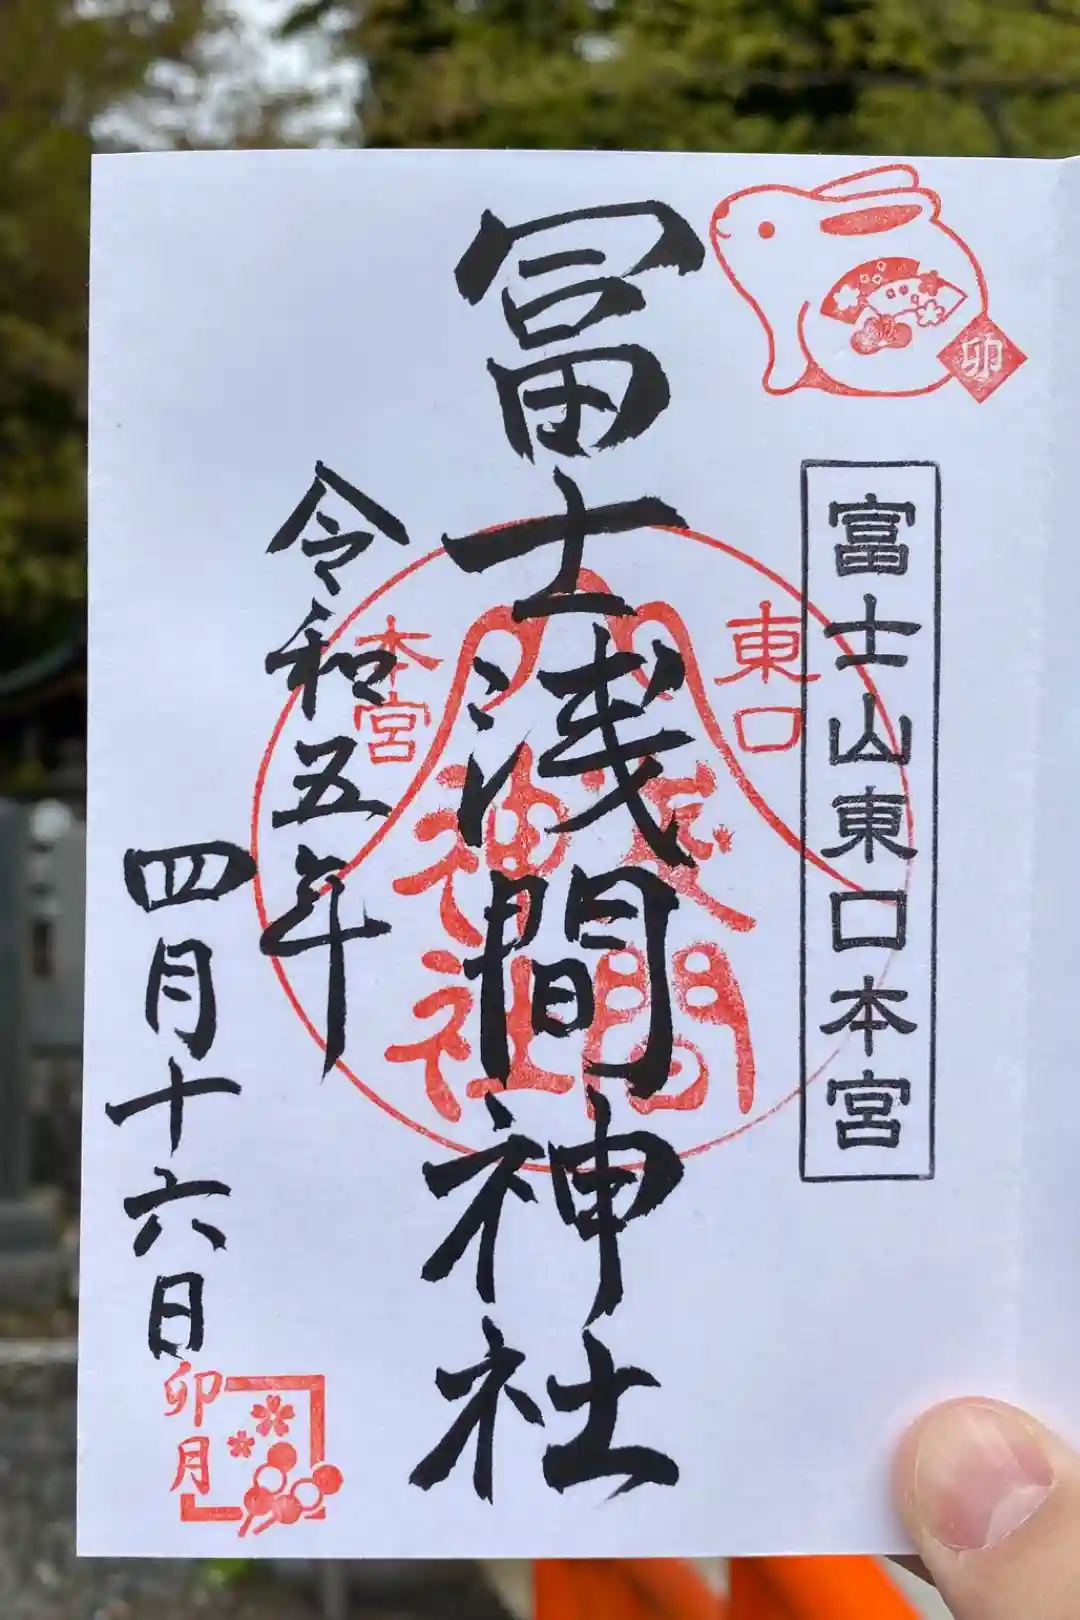 卯
富士山東口本宮
冨士浅間神社
東口
本宮
浅間
神社
令和五年
四月十六日
卯月